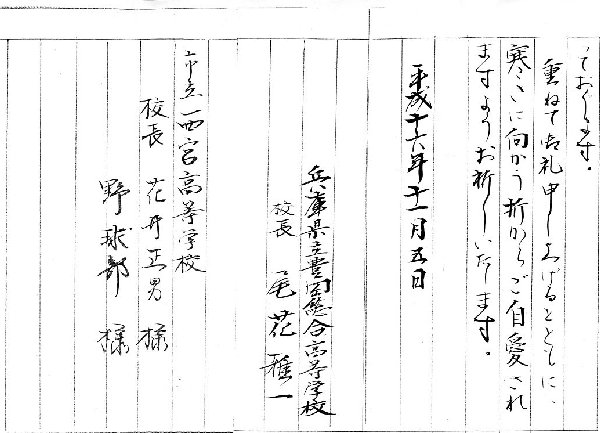 ております。
重ねて御礼申しあげるとともに、
寒さに向かう折からご自愛され
ますようお祈りいたします。
平成十六年十一月五日
兵庫県立豊岡総合高等学校
校長 尾花 雅一
市立西宮高等学校
校長 花井正男 様
野球部 様